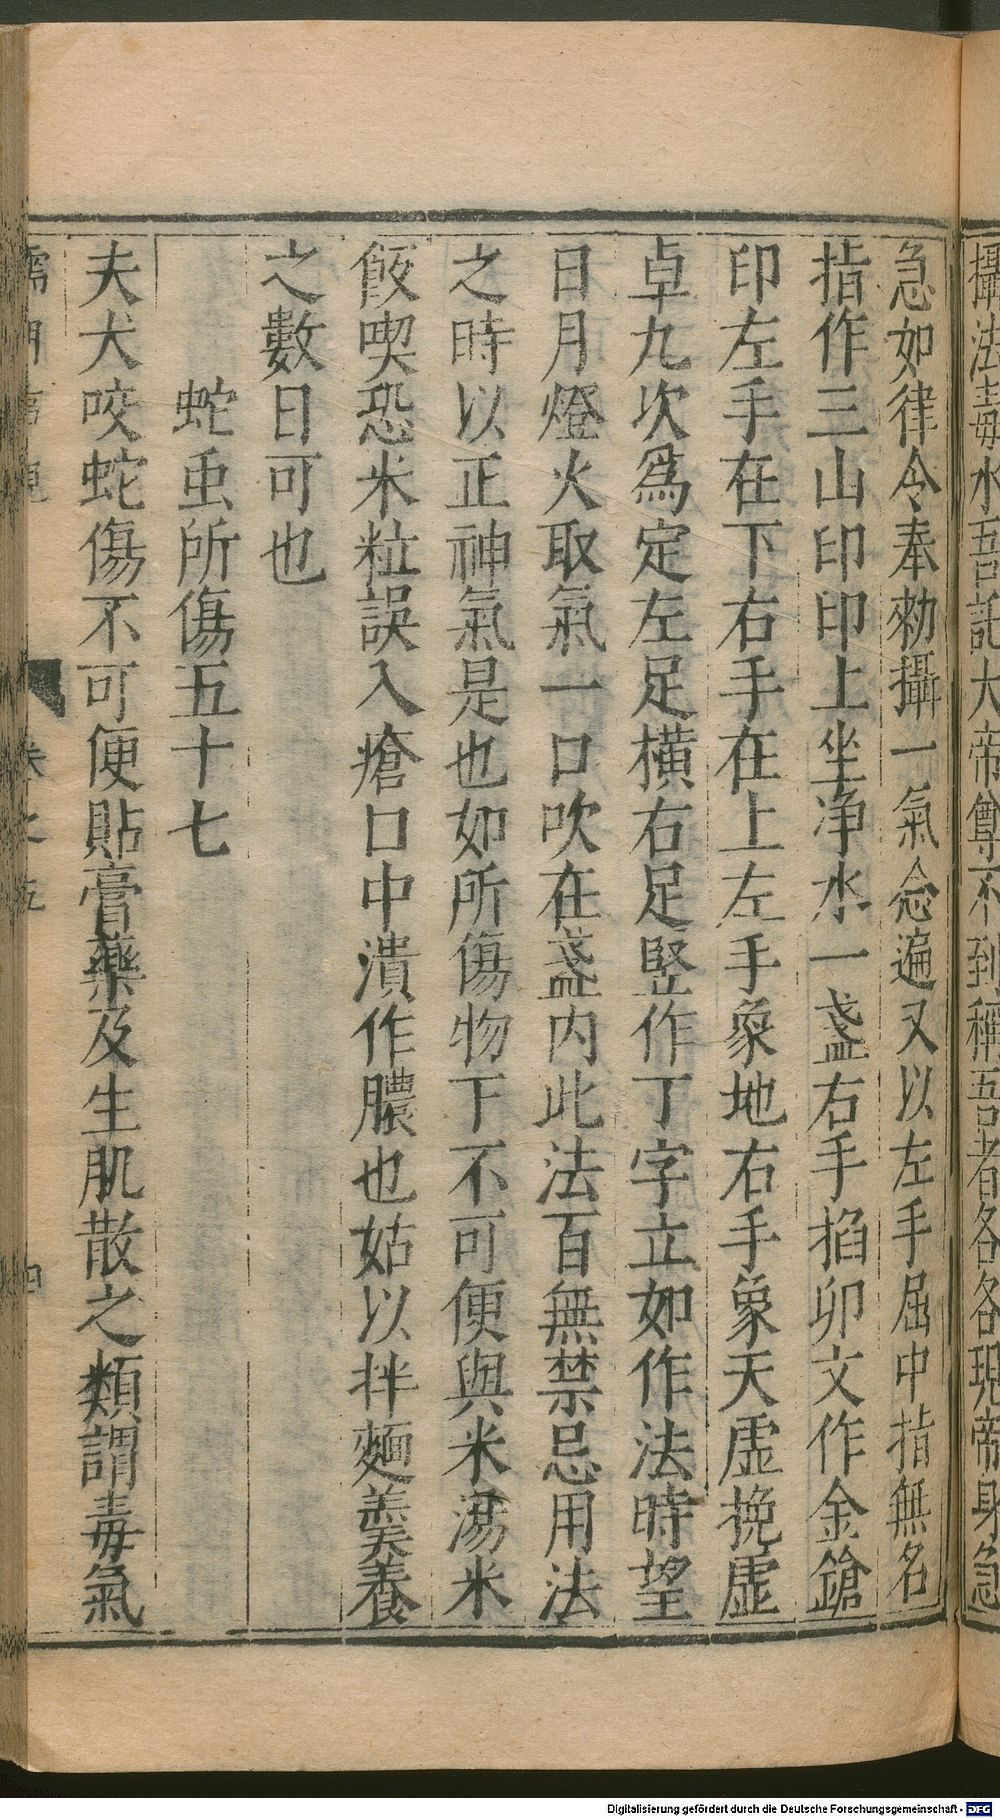 攝法毒水吾託大帝尊不到稱吾者各各現帝身急
急如律令奉勑攝一氣念遍又以左手屈中指無名
指作三山印印上坐净水一盞右手掐卯文作金鎗
印左手在下右手在上左手象地右手象天虛挽虛
卓九次爲定左足橫右足竪作丁字立如作法時望
日月燈火取氣一口吹在盞内此法百無禁忌用法
之時以正神氣是也如所傷物下不可便與米湯米
飯喫恐米粒誤入瘡口中潰作膿也姑以拌麵羹養
之數日可也
蛇虫所傷五十七
夫犬咬蛇傷不可便貼膏藥及生肌散之類謂毒氣
儒門事親 卷之五 四
Digitalisierung gefördert durch die Deutsche Forschungsgemeinschaft - DFG